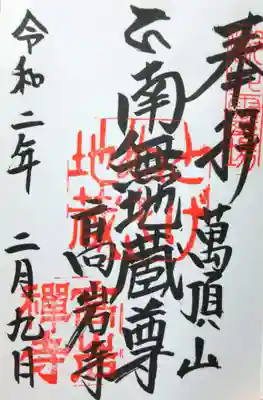 奉拝 萬頂山
南無地蔵尊
高岩寺
令和二年 二月九日
地蔵
高岩
禪寺